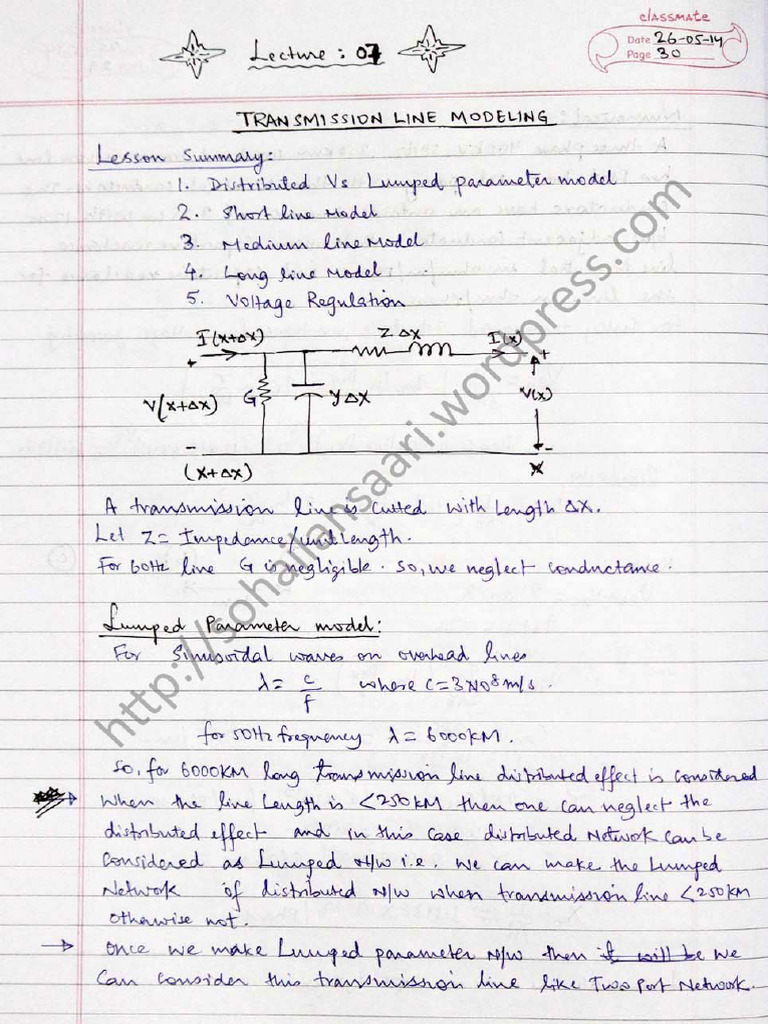 classmate
Date 26-05-14
Page 30
Lecture : 07
TRANSMISSION LINE MODELING
Lesson Summary:
1. Distributed Vs Lumped parameter model
2. Short line Model
3. Medium line Model
4. Long line Model
5. Voltage Regulation
I(x+Δx) ZΔx I(x)
+ +
V(x+Δx) G yΔx V(x)
- -
(x+Δx) x
A transmission line is cutted with length Δx.
Let Z = Impedance/unit length.
For 60Hz line G is negligible. So, we neglect conductance.
Lumped Parameter model:
For Sinusoidal waves on overhead lines
λ = c/f where c = 3×10⁸ m/s.
for 50Hz frequency λ = 6000KM.
So, for 6000KM long transmission line distributed effect is considered
→ When the line length is <250KM then one can neglect the
distributed effect and in this case distributed Network can be
Considered as Lumped N/w i.e. we can make the Lumped
Network of distributed N/w when transmission line <250KM
otherwise not.
→ Once we make Lumped parameter N/w then it will be we
Can consider this transmission line like Two Port Network.
http://sohailansaari.wordpress.com